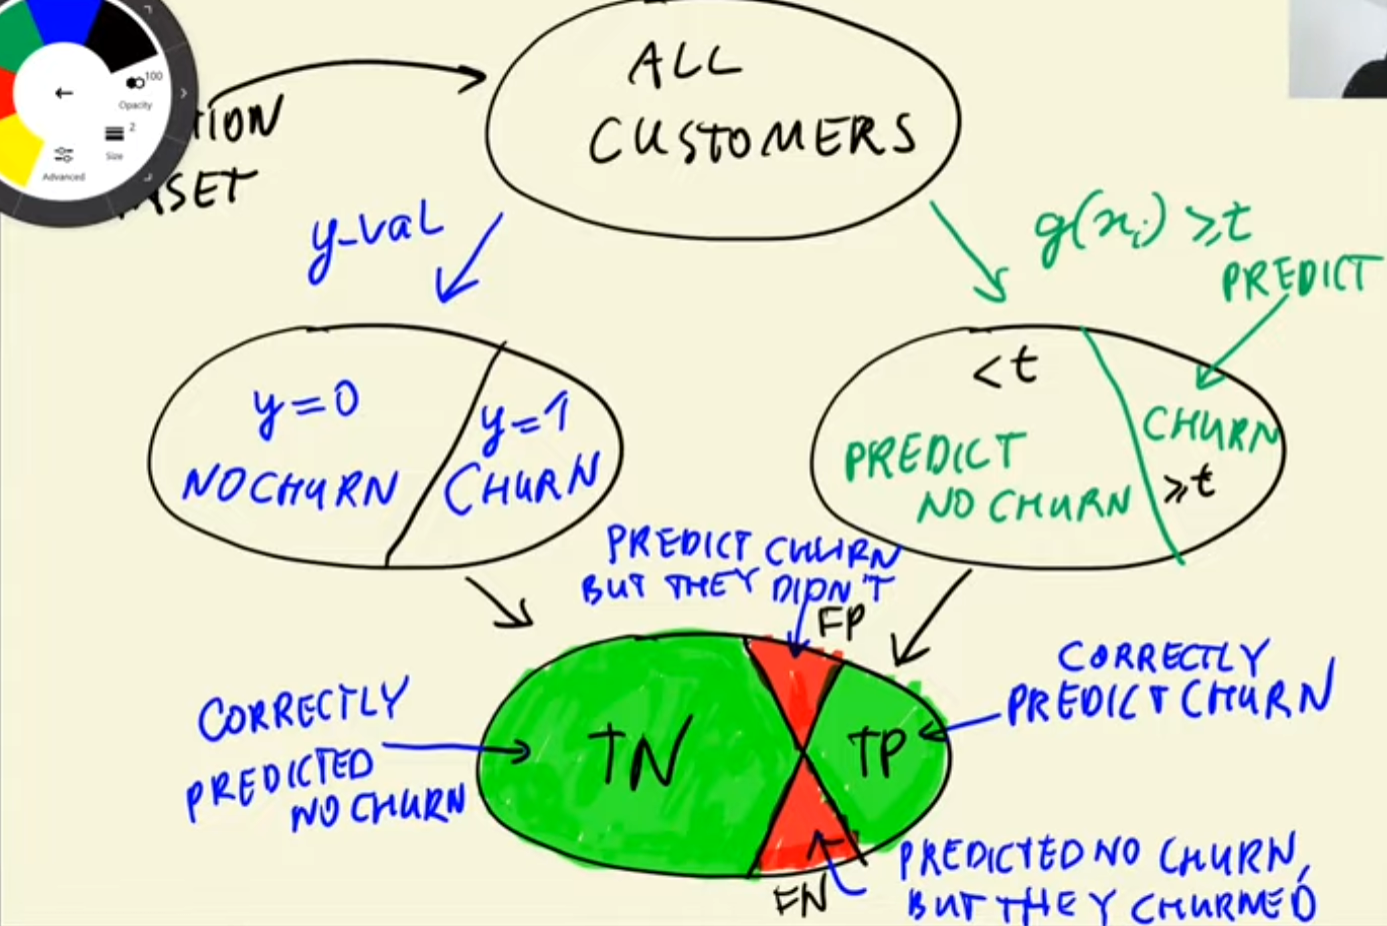 100
Opacity
2
Size
Advanced
ALL
CUSTOMERS
y-val
g(xi) ≥t
PREDICT
y=0
NO CHURN
y=1
CHURN
<t
PREDICT
NO CHURN
CHURN
≥t
PREDICT CHURN
BUT THEY DIDN'T
FP
CORRECTLY
PREDICTED
NO CHURN
TN
TP
CORRECTLY
PREDICT CHURN
FN
PREDICTED NO CHURN,
BUT THEY CHURNED